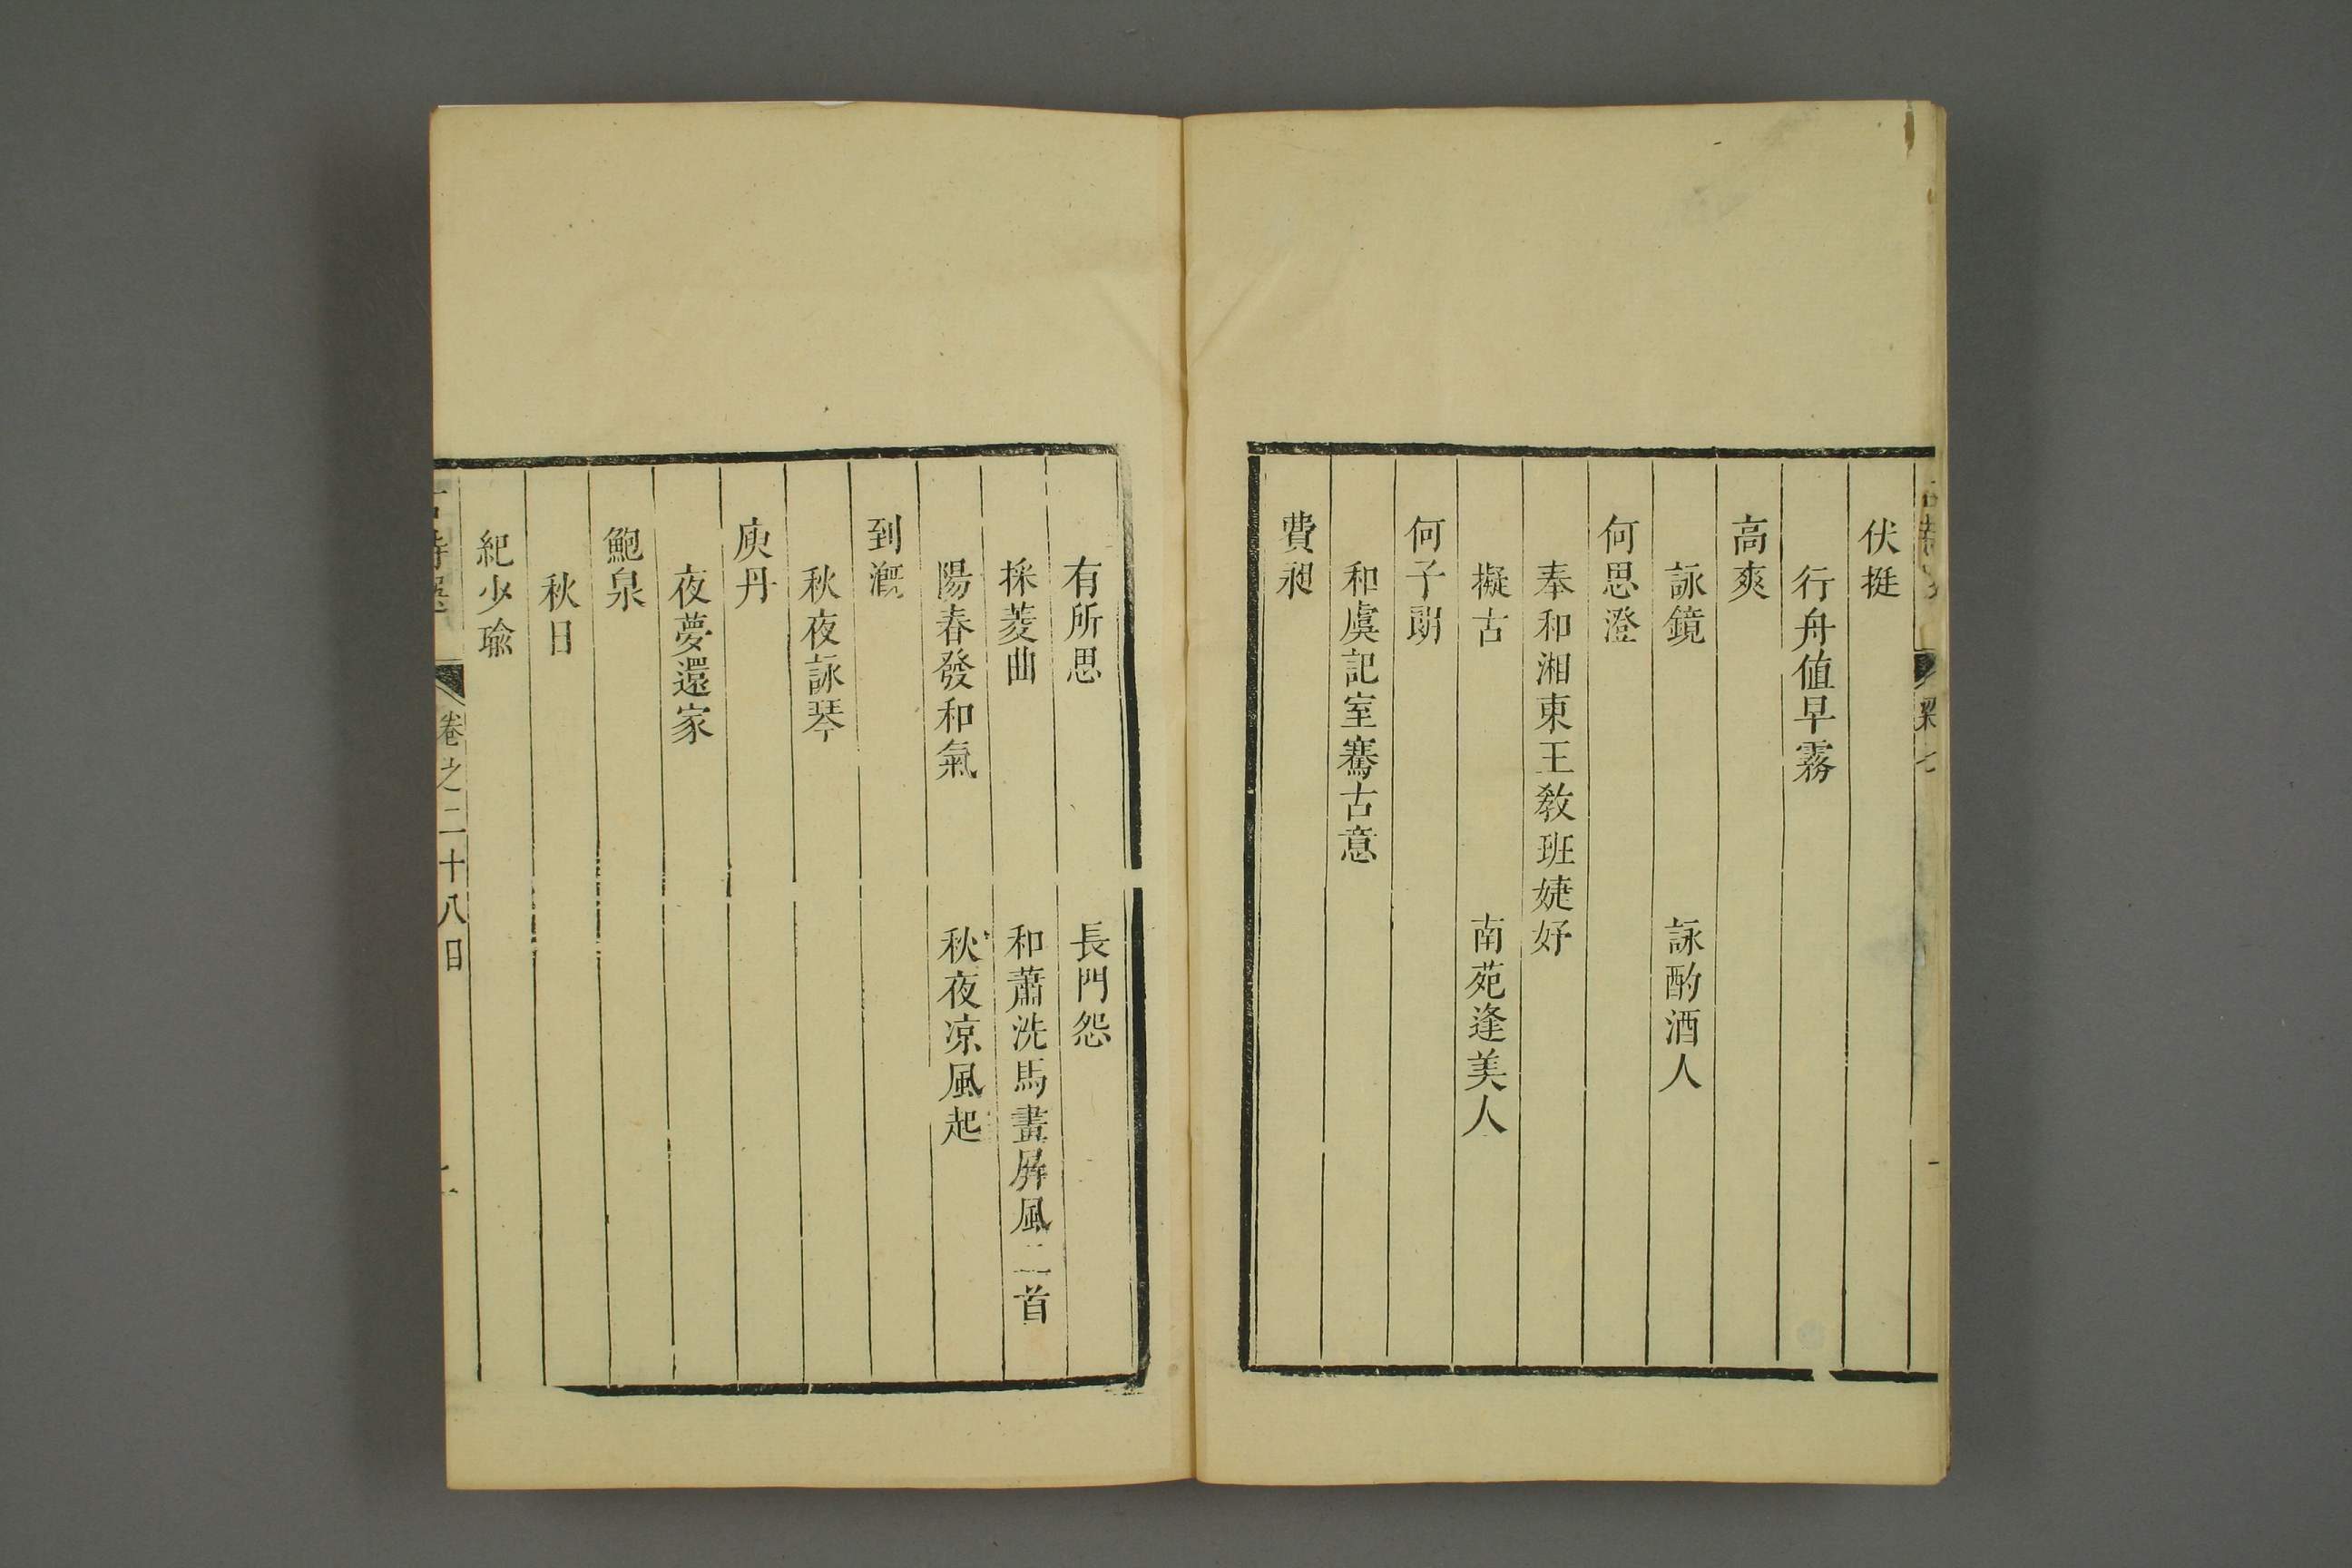 伏挺
行舟值早霧
高爽
詠鏡　詠酌酒人
何思澄
奉和湘東王教班婕妤
擬古　南苑逢美人
何子朗
和虞記室騫古意
費昶
有所思　長門怨
採菱曲　和蕭洗馬畫屏風二首
陽春發和氣　秋夜凉風起
到溉
秋夜詠琴
庾丹
夜夢還家
鮑泉
秋日
紀少瑜
卷之二十八目